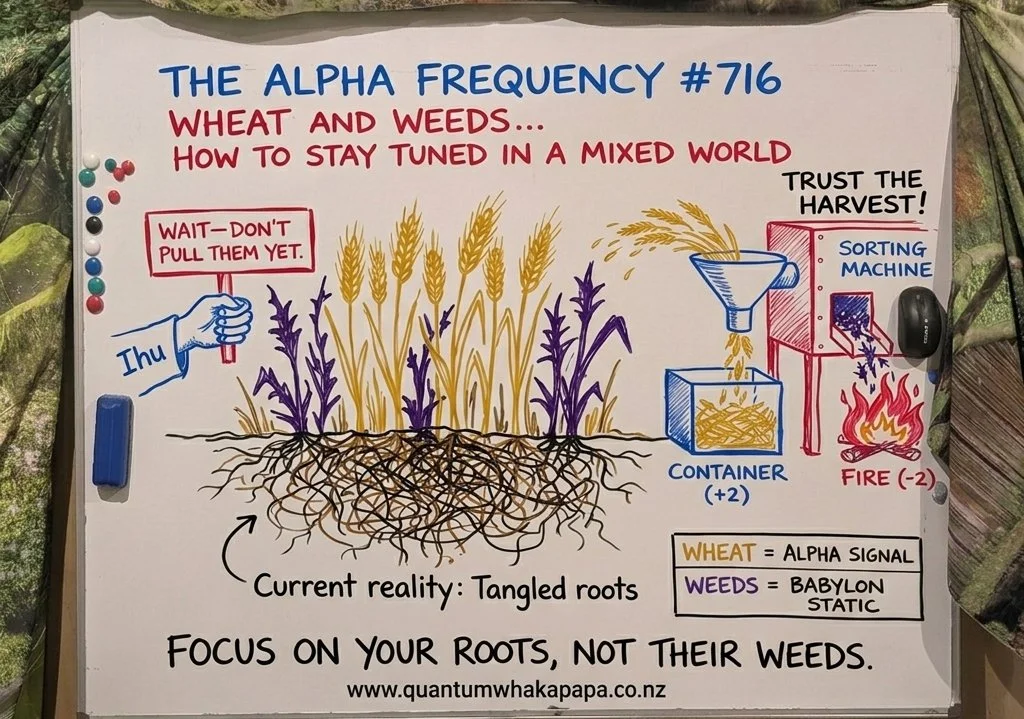 THE ALPHA FREQUENCY #716
WHEAT AND WEEDS...
HOW TO STAY TUNED IN A MIXED WORLD
TRUST THE
HARVEST!
WAIT—DON'T
PULL THEM YET.
Ihu
SORTING
MACHINE
CONTAINER
(+2)
FIRE (-2)
WHEAT = ALPHA SIGNAL
WEEDS = BABYLON
STATIC
Current reality: Tangled roots
FOCUS ON YOUR ROOTS, NOT THEIR WEEDS.
www.quantumwhakapapa.co.nz